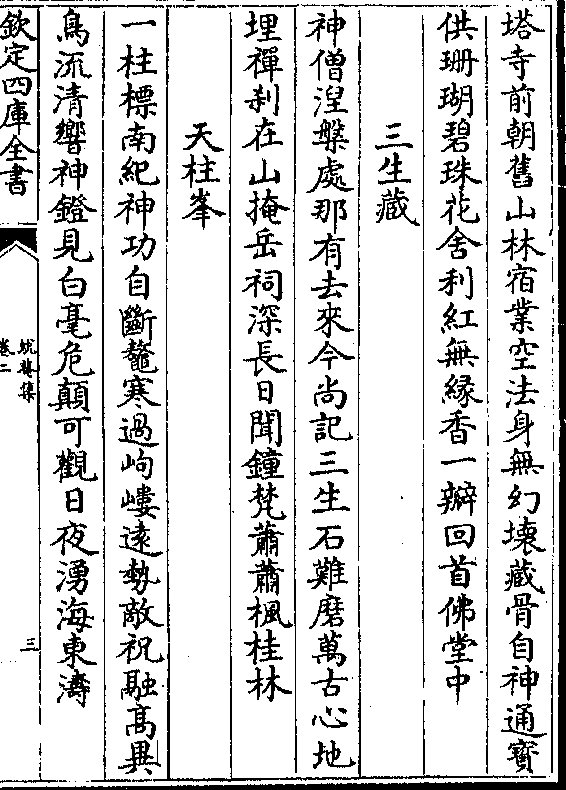 塔寺前朝舊山林宿業空法身無幻壊藏骨自神通寳
供珊瑚碧珠花舍利紅無緣香一瓣回首佛堂中
三生藏
神僧湼槃處那有去來今尚記三生石難磨萬古心地
埋禪刹在山掩岳祠深長日聞鐘梵蕭蕭楓桂林
天柱峯
一柱標南紀神功自斷鼇寒過岣嶁逺勢敵祝融髙異
鳥流清響神鐙見白毫危顛可觀日夜湧海東濤
欽定四庫全書
蛻菴集
卷二
三